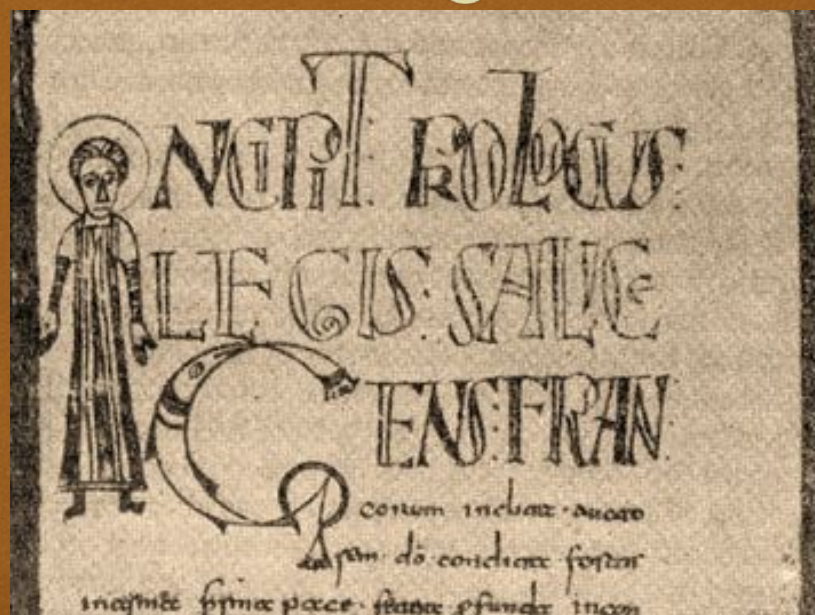 INCIPIT PROLOGUS:
LEGIS: SALICE
GENS: FRAN
corum inclita · aucto
dō · condita fortis
pace · pfunda incon